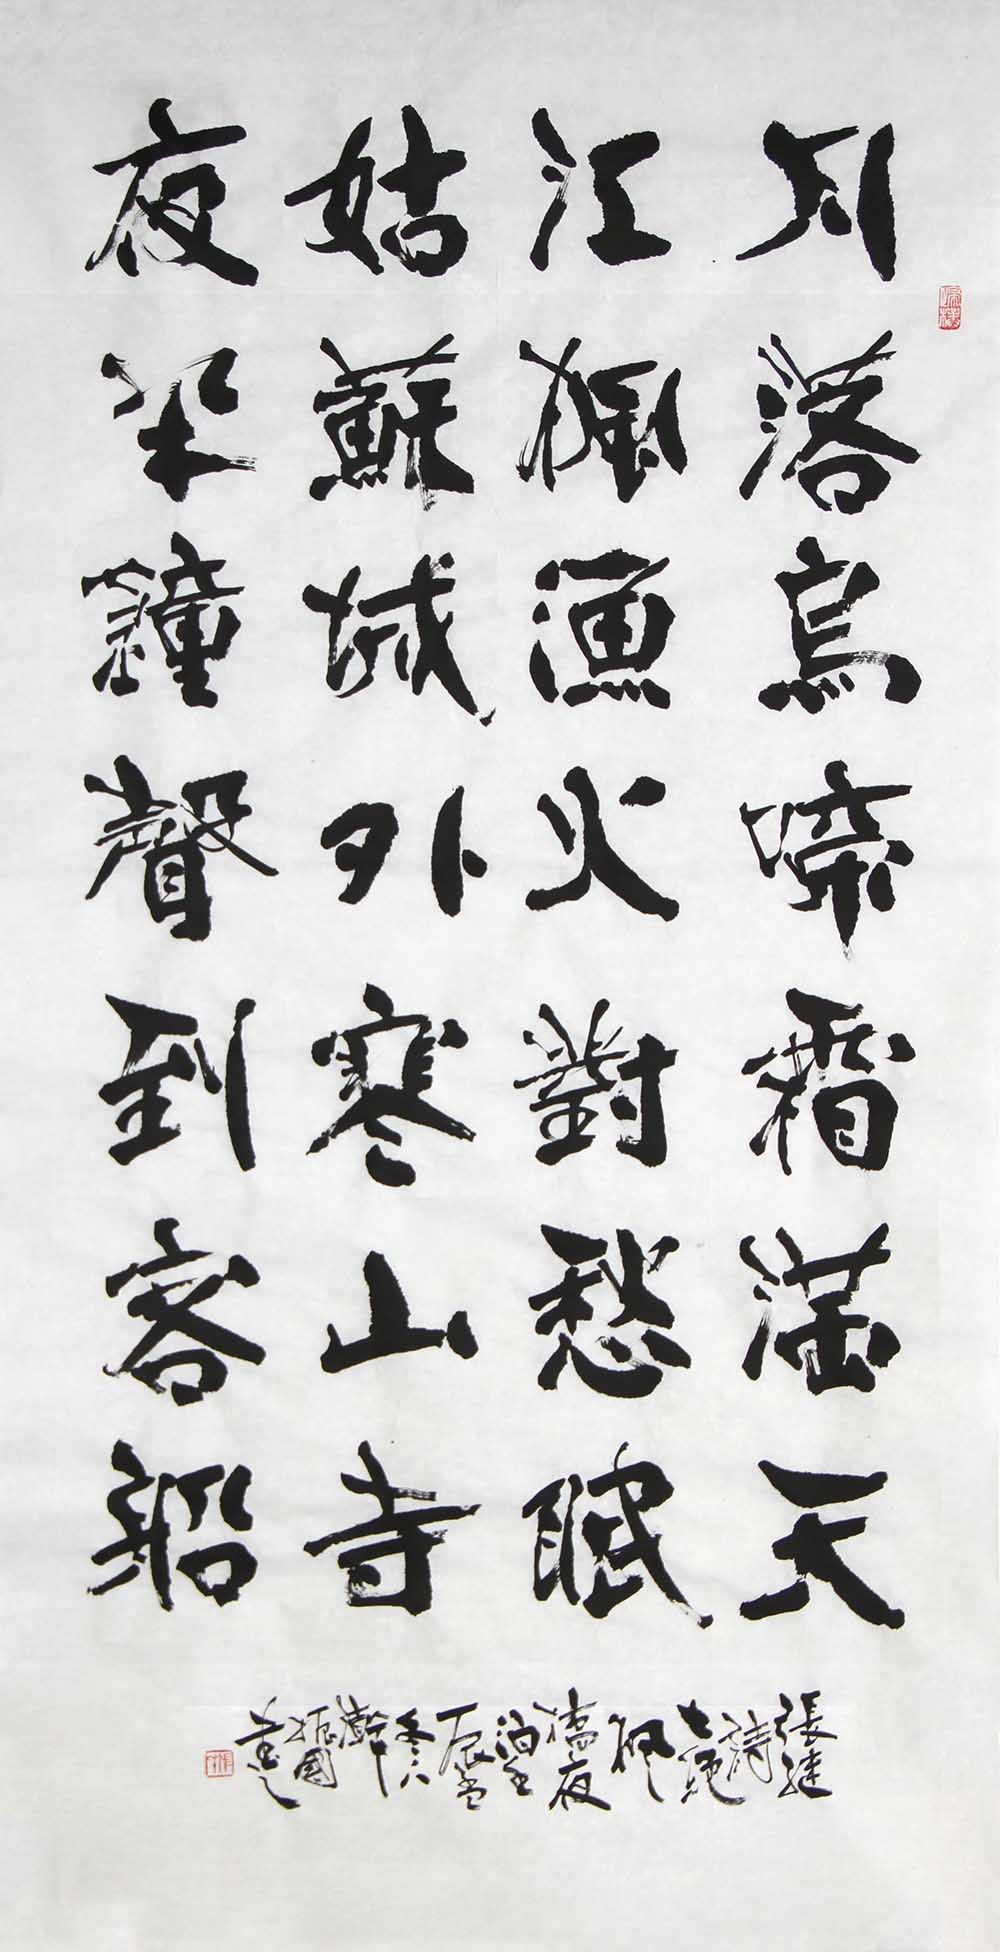 月落烏啼霜滿天
江楓漁火對愁眠
姑蘇城外寒山寺
夜半鐘聲到客船
張継
詩
七絕
楓
橋夜
泊壬
辰孟
冬
振國
書